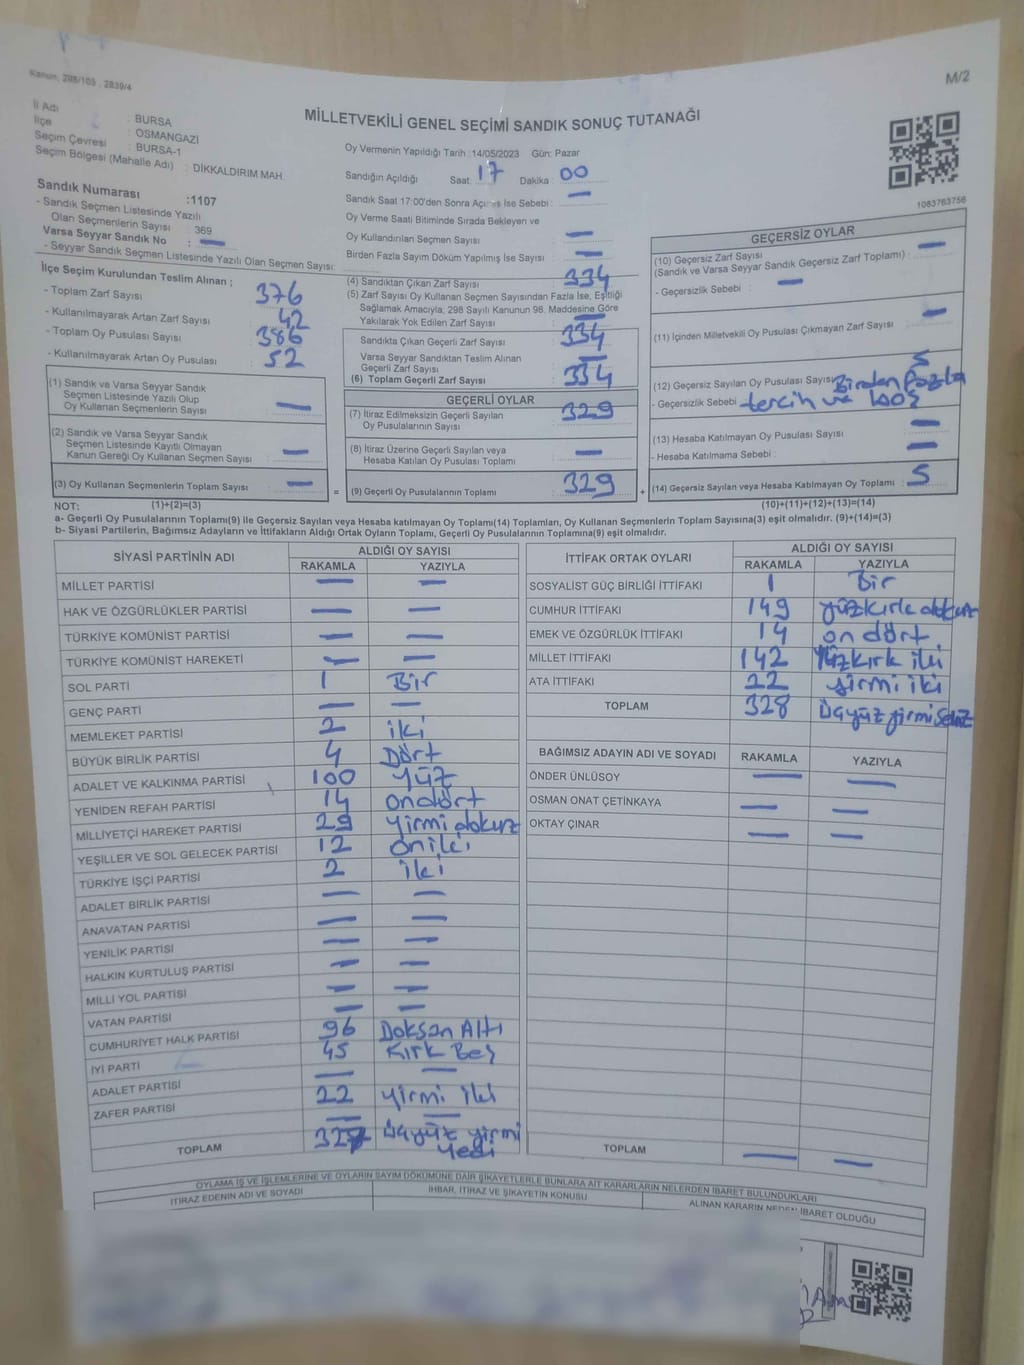 Kanun, 298/105 , 2839/4
M/2
İl Adı : BURSA
İlçe : OSMANGAZİ
Seçim Çevresi : BURSA-1
Seçim Bölgesi (Mahalle Adı) : DİKKALDIRIM MAH.
MİLLETVEKİLİ GENEL SEÇİMİ SANDIK SONUÇ TUTANAĞI
Oy Vermenin Yapıldığı Tarih :14/05/2023 Gün: Pazar
Sandığın Açıldığı Saat: 17 Dakika : 00
Sandık Saat 17:00'den Sonra Açılmış İse Sebebi : —
Oy Verme Saati Bitiminde Sırada Bekleyen ve
Oy Kullandırılan Seçmen Sayısı : —
Birden Fazla Sayım Döküm Yapılmış İse Sayısı : —
1063763756
Sandık Numarası :1107
- Sandık Seçmen Listesinde Yazılı
Olan Seçmenlerin Sayısı : 369
Varsa Seyyar Sandık No : —
- Seyyar Sandık Seçmen Listesinde Yazılı Olan Seçmen Sayısı:
İlçe Seçim Kurulundan Teslim Alınan ;
- Toplam Zarf Sayısı : 376
- Kullanılmayarak Artan Zarf Sayısı : 42
- Toplam Oy Pusulası Sayısı : 386
- Kullanılmayarak Artan Oy Pusulası : 52
(1) Sandık ve Varsa Seyyar Sandık
Seçmen Listesinde Yazılı Olup
Oy Kullanan Seçmenlerin Sayısı : —
(2) Sandık ve Varsa Seyyar Sandık
Seçmen Listesinde Kayıtlı Olmayan
Kanun Gereği Oy Kullanan Seçmen Sayısı : —
(3) Oy Kullanan Seçmenlerin Toplam Sayısı : —
(4) Sandıktan Çıkan Zarf Sayısı : 334
(5) Zarf Sayısı Oy Kullanan Seçmen Sayısından Fazla İse, Eşitliği
Sağlamak Amacıyla; 298 Sayılı Kanunun 98. Maddesine Göre
Yakılarak Yok Edilen Zarf Sayısı : —
Sandıkta Çıkan Geçerli Zarf Sayısı : 334
Varsa Seyyar Sandıktan Teslim Alınan
Geçerli Zarf Sayısı : —
(6) Toplam Geçerli Zarf Sayısı : 334
GEÇERLİ OYLAR
(7) İtiraz Edilmeksizin Geçerli Sayılan
Oy Pusulalarının Sayısı : 329
(8) İtiraz Üzerine Geçerli Sayılan veya
Hesaba Katılan Oy Pusulası Toplamı : —
= (9) Geçerli Oy Pusulalarının Toplamı : 329
GEÇERSİZ OYLAR
(10) Geçersiz Zarf Sayısı
(Sandık ve Varsa Seyyar Sandık Geçersiz Zarf Toplamı) : —
- Geçersizlik Sebebi : —
(11) İçinden Milletvekili Oy Pusulası Çıkmayan Zarf Sayısı : —
(12) Geçersiz Sayılan Oy Pusulası Sayısı : 5
- Geçersizlik Sebebi : Birden fazla
tercih ve boş
(13) Hesaba Katılmayan Oy Pusulası Sayısı : —
- Hesaba Katılmama Sebebi : —
+ (14) Geçersiz Sayılan veya Hesaba Katılmayan Oy Toplamı : 5
NOT: (1)+(2)=(3) (10)+(11)+(12)+(13)=(14)
a- Geçerli Oy Pusulalarının Toplamı(9) ile Geçersiz Sayılan veya Hesaba katılmayan Oy Toplamı(14) Toplamları, Oy Kullanan Seçmenlerin Toplam Sayısına(3) eşit olmalıdır. (9)+(14)=(3)
b- Siyasi Partilerin, Bağımsız Adayların ve İttifakların Aldığı Ortak Oyların Toplamı, Geçerli Oy Pusulalarının Toplamına(9) eşit olmalıdır.
SİYASİ PARTİNİN ADI ALDIĞI OY SAYISI
RAKAMLA YAZIYLA
MİLLET PARTİSİ — —
HAK VE ÖZGÜRLÜKLER PARTİSİ — —
TÜRKİYE KOMÜNİST PARTİSİ — —
TÜRKİYE KOMÜNİST HAREKETİ — —
SOL PARTİ 1 Bir
GENÇ PARTİ — —
MEMLEKET PARTİSİ 2 iki
BÜYÜK BİRLİK PARTİSİ 4 Dört
ADALET VE KALKINMA PARTİSİ 100 yüz
YENİDEN REFAH PARTİSİ 14 ondört
MİLLİYETÇİ HAREKET PARTİSİ 29 yirmi dokuz
YEŞİLLER VE SOL GELECEK PARTİSİ 12 oniki
TÜRKİYE İŞÇİ PARTİSİ 2 iki
ADALET BİRLİK PARTİSİ — —
ANAVATAN PARTİSİ — —
YENİLİK PARTİSİ — —
HALKIN KURTULUŞ PARTİSİ — —
MİLLİ YOL PARTİSİ — —
VATAN PARTİSİ — —
CUMHURİYET HALK PARTİSİ 96 Doksan Altı
İYİ PARTİ 45 Kırk Beş
ADALET PARTİSİ — —
ZAFER PARTİSİ 22 yirmi iki
— —
TOPLAM 327 üçyüz yirmi
yedi
İTTİFAK ORTAK OYLARI ALDIĞI OY SAYISI
RAKAMLA YAZIYLA
SOSYALİST GÜÇ BİRLİĞİ İTTİFAKI 1 Bir
CUMHUR İTTİFAKI 149 yüzkırk dokuz
EMEK VE ÖZGÜRLÜK İTTİFAKI 14 on dört
MİLLET İTTİFAKI 142 yüzkırk iki
ATA İTTİFAKI 22 yirmi iki
TOPLAM 328 üçyüz yirmi sekiz
BAĞIMSIZ ADAYIN ADI VE SOYADI RAKAMLA YAZIYLA
ÖNDER ÜNLÜSOY — —
OSMAN ONAT ÇETİNKAYA — —
OKTAY ÇINAR — —
TOPLAM — —
OYLAMA İŞ VE İŞLEMLERİNE VE OYLARIN SAYIM DÖKÜMÜNE DAİR ŞİKAYETLERLE BUNLARA AİT KARARLARIN NELERDEN İBARET BULUNDUKLARI
İTİRAZ EDENİN ADI VE SOYADI İHBAR, İTİRAZ VE ŞİKAYETİN KONUSU ALINAN KARARIN NEDEN İBARET OLDUĞU